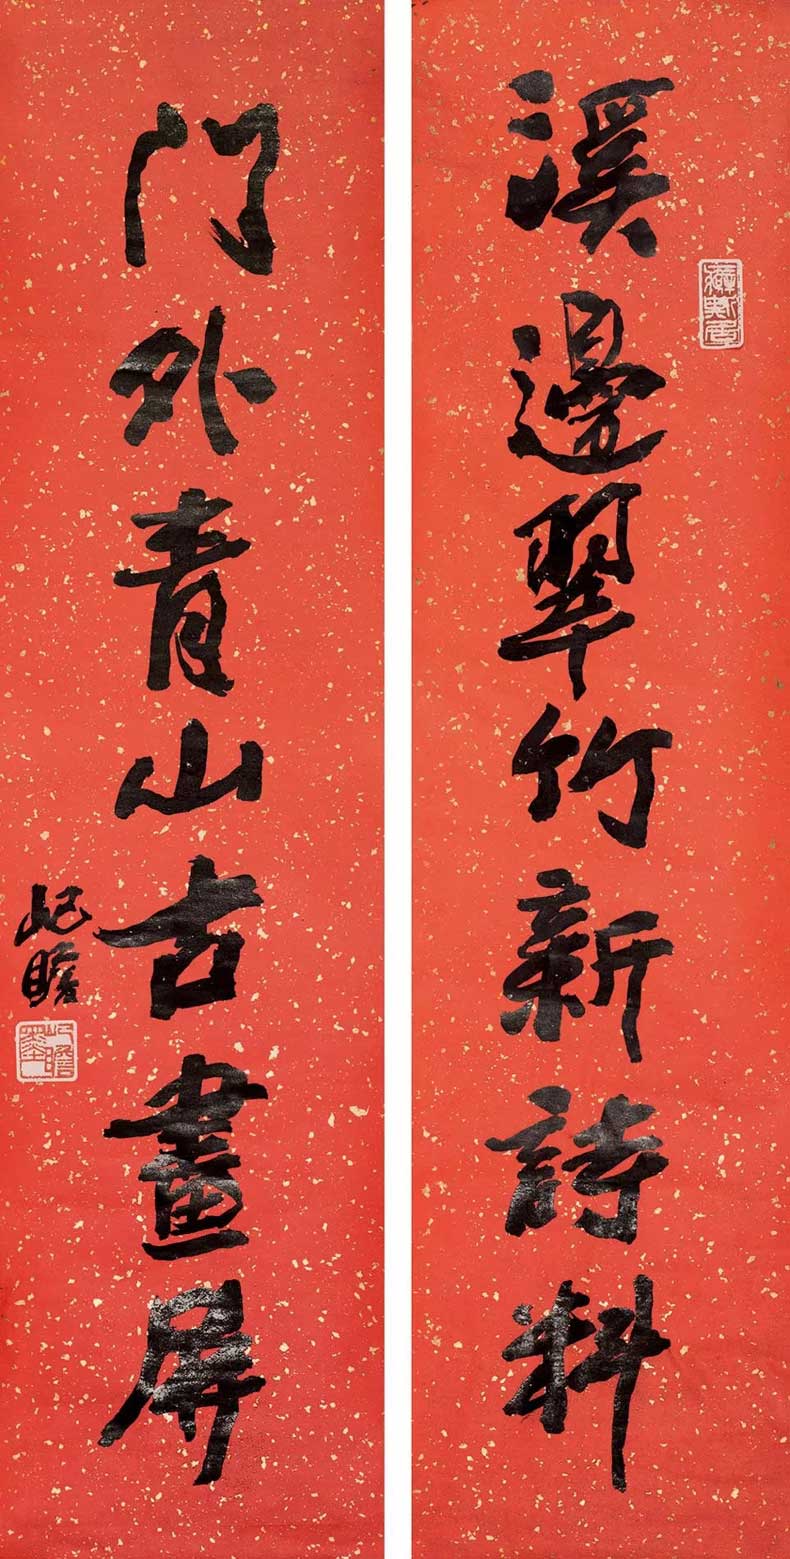 溪邊翠竹新詩料
門外青山古畫屏
屺瞻